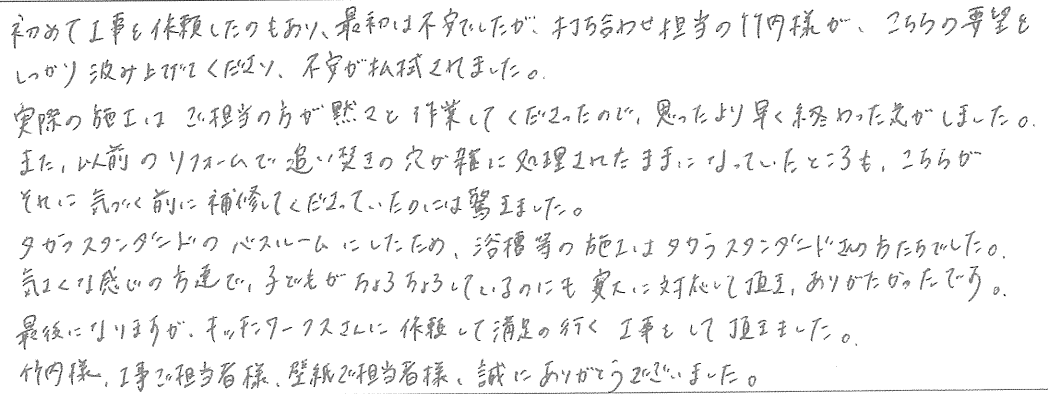 初めて工事を依頼したのもあり、最初は不安でしたが、打ち合わせ担当の竹内様が、こちらの要望を
しっかり汲み上げてくださり、不安が払拭されました。
実際の施工はご担当の方が黙々と作業してくださったので、思ったより早く終わった気がしました。
また、以前のリフォームで追い焚きの穴が雑に処理されたままになっていたところも、こちらが
それに気づく前に補修してくださっていたのには驚きました。
タカラスタンダードのバスルームにしたため、浴槽等の施工はタカラスタンダードさんの方たちでした。
気さくな感じの方達で、子どもがちょろちょろしているのにも寛大に対応して頂き、ありがたかったです。
最後になりますが、キッチンワークスさんに依頼して満足の行く工事をして頂きました。
竹内様、工事ご担当者様、壁紙ご担当者様、誠にありがとうございました。